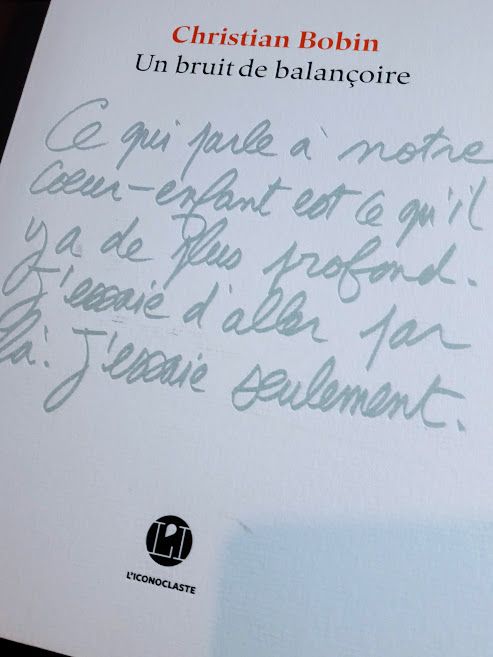 Christian Bobin
Un bruit de balançoire
Ce qui parle à notre
coeur-enfant est ce qu'il
y a de plus profond.
J'essaie d'aller par
là. J'essaie seulement.
L'ICONOCLASTE